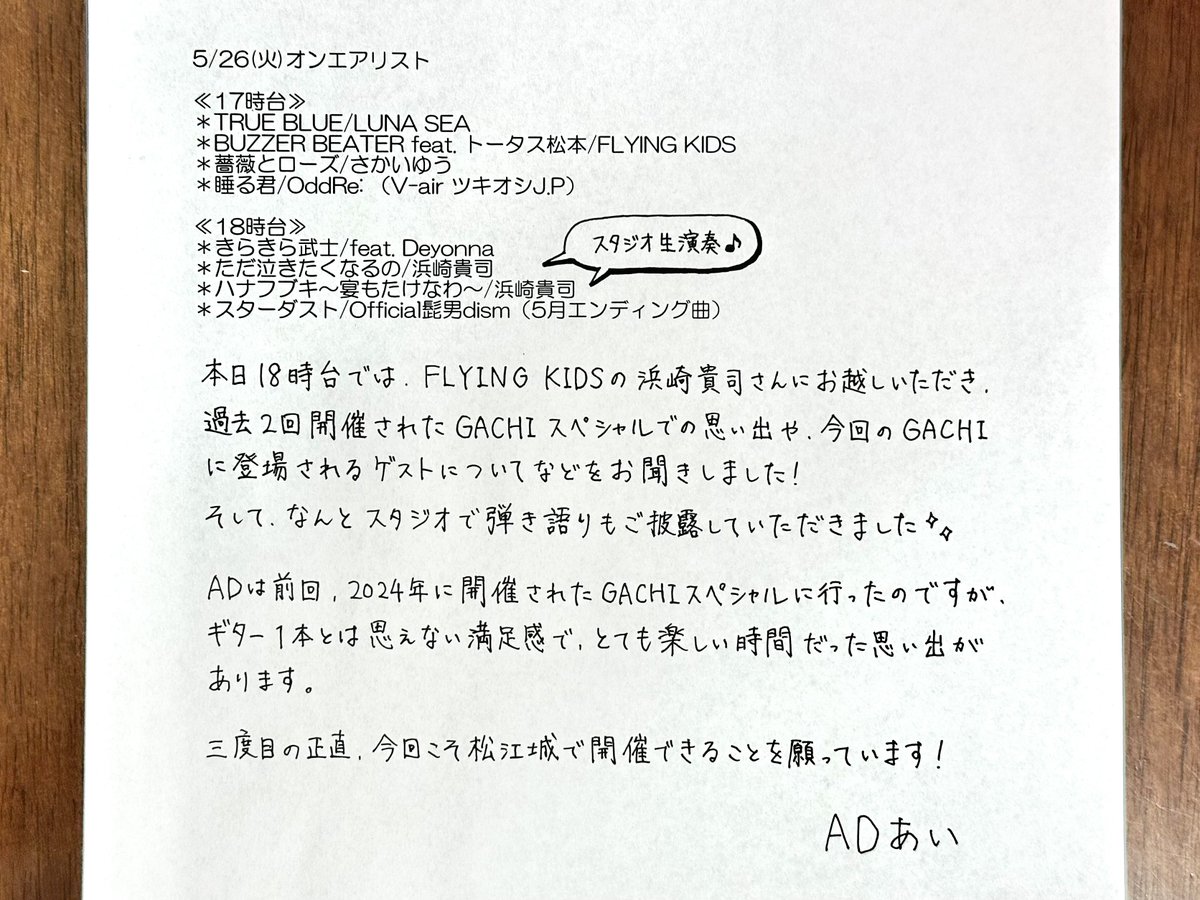 5/26(火)オンエアリスト
≪17時台≫
＊TRUE BLUE/LUNA SEA
＊BUZZER BEATER feat. トータス松本/FLYING KIDS
＊薔薇とローズ/さかいゆう
＊睡る君/OddRe:（V-air ツキオシJ.P）
≪18時台≫
＊きらきら武士/feat. Deyonna
＊ただ泣きたくなるの/浜崎貴司
＊ハナフブキ～宴もたけなわ～/浜崎貴司
＊スターダスト/Official髭男dism（5月エンディング曲）
スタジオ生演奏♪
本日18時台では、FLYING KIDSの浜崎貴司さんにお越しいただき、
過去2回開催されたGACHIスペシャルでの思い出や、今回のGACHI
に登場されるゲストについてなどをお聞きしました！
そして、なんとスタジオで弾き語りもご披露していただきました✨
ADは前回、2024年に開催されたGACHIスペシャルに行ったのですが、
ギター1本とは思えない満足感で、とても楽しい時間だった思い出が
あります。
三度目の正直、今回こそ松江城で開催できることを願っています！
ADあい